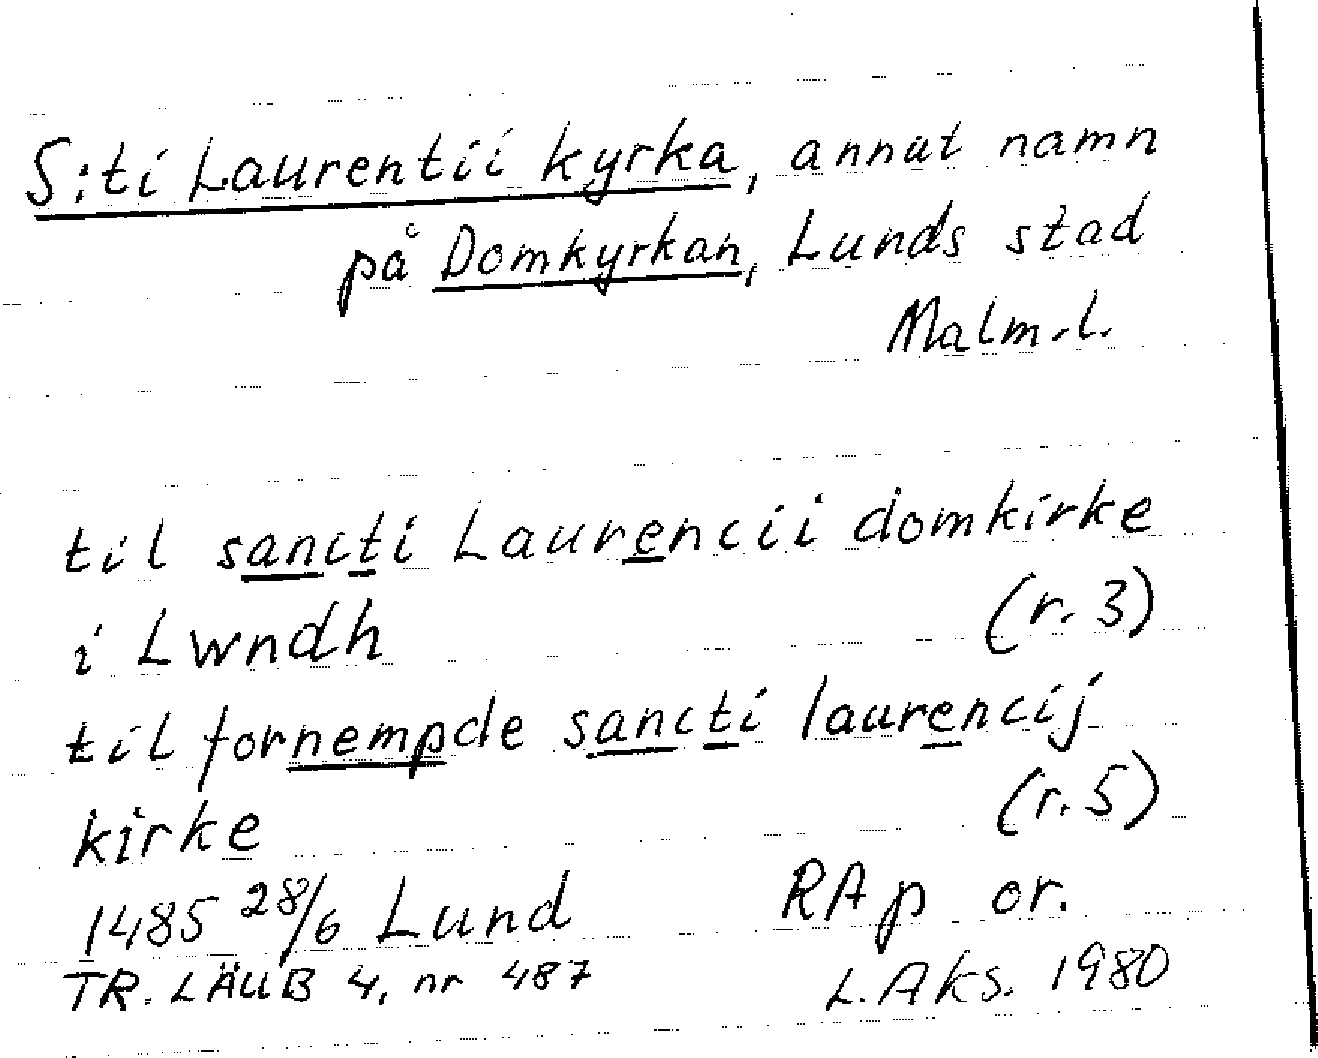 S:ti Laurentii kyrka, annat namn
på Domkyrkan, Lunds stad
Malm.l.
til sancti Laurencii domkirke
i Lwndh (r. 3)
til fornempde sancti laurencij
kirke (r. 5)
1485 28/6 Lund RAp or.
TR. LÄUB 4, nr 487 L.Aks. 1980